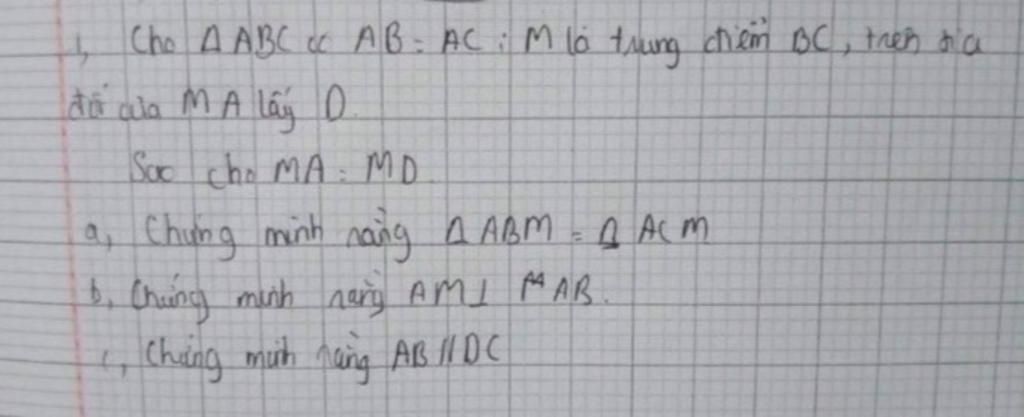 1, Cho Δ ABC có AB = AC ; M là trung điểm BC, trên tia
đối của MA lấy D.
Sao cho MA = MD.
a, Chứng minh rằng Δ ABM = Δ ACM
b, Chứng minh rằng AM ⊥ AB.
c, Chứng minh rằng AB // DC